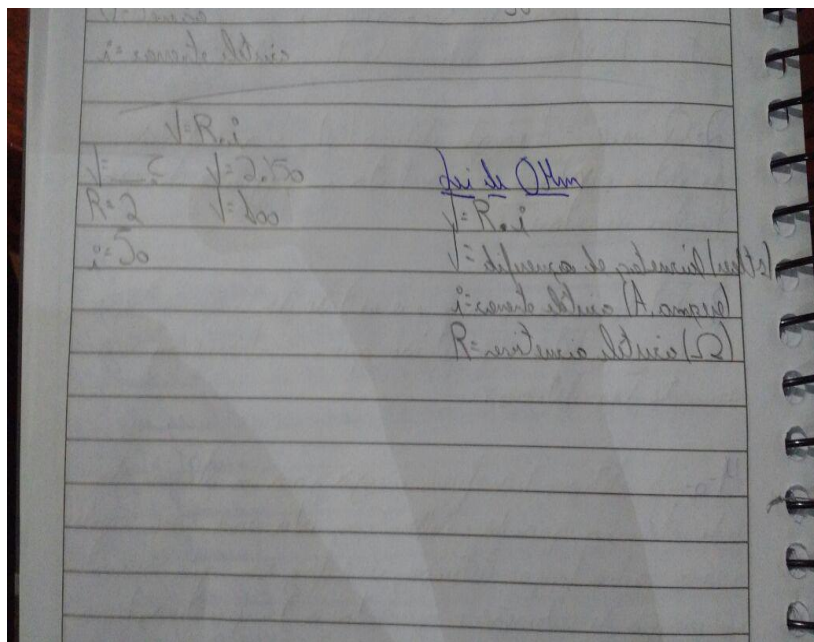 i = corrente elétrica
V=R.i
V= ? V=2.50
R=2 V=100
i=50
Lei de OHm
V=R.i
V= diferença de potencial (volts)
i= corrente elétrica (A
R= resistência elétrica (Ω)